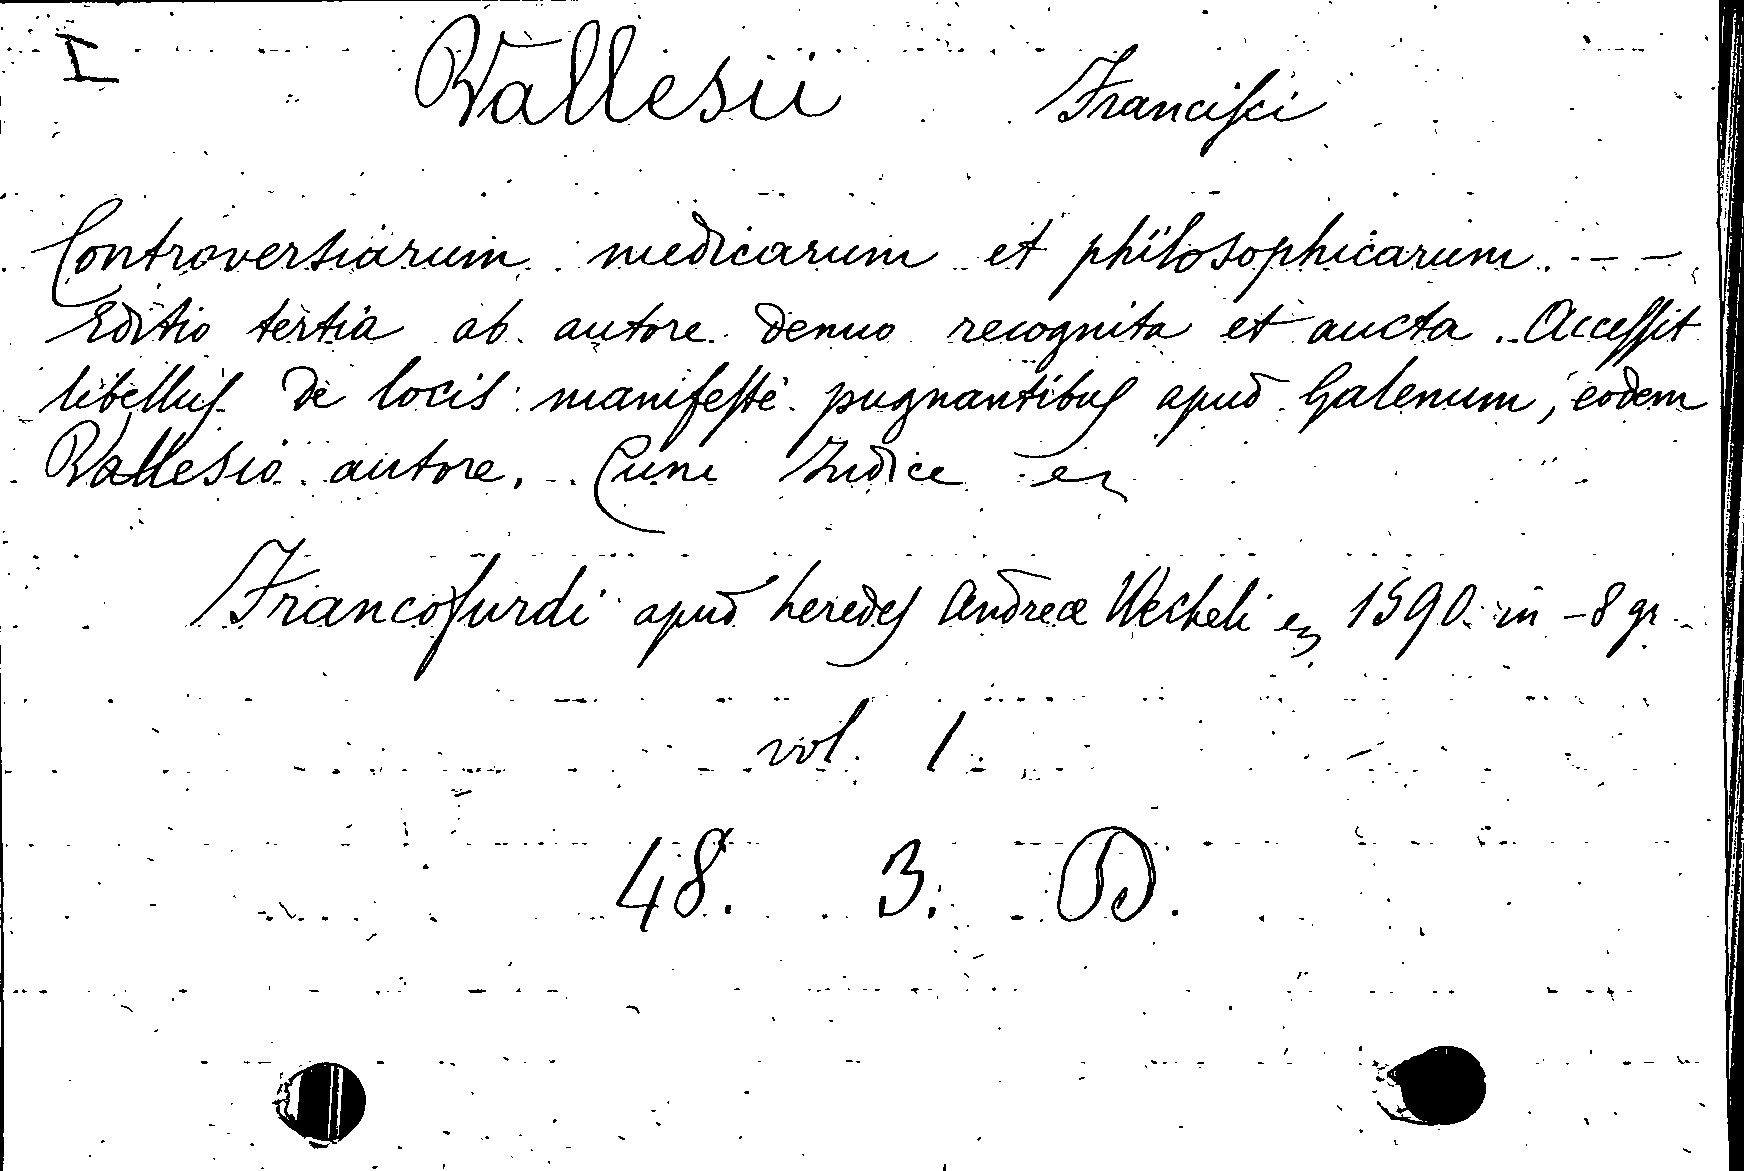 I Vallesii Francisci
Controversiarum medicarum et philosophicarum . - - -
Editio tertia ab autore denuo recognita et aucta. Accessit
libellus de locis manifeste pugnantibus apud Galenum, eodem
Vallesio autore. Cum Indice
Francofurdi apud heredes Andreæ Wecheli 1590. in-8 gr.
vol. 1.
48. 3. D.